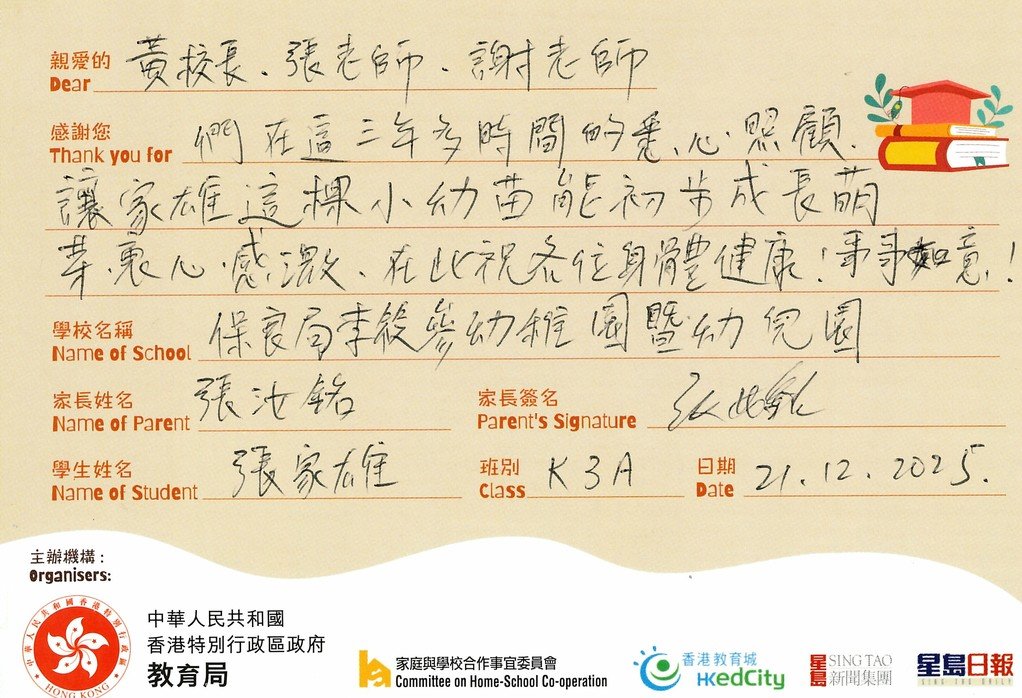 親愛的 黃校長、張老師、謝老師
Dear
感謝您 們在這三年多時間的悉心照顧,
Thank you for
讓家雄這棵小幼苗能初步成長萌
芽,衷心感激、在此祝各位身體健康!事事如意!
學校名稱 保良局李筱參幼稚園暨幼兒園
Name of School
家長姓名 張汝銘 家長簽名
Name of Parent Parent's Signature
學生姓名 張家雄 班別 K3A 日期 21.12.2025.
Name of Student Class Date
主辦機構:
Organisers:
中華人民共和國
香港特別行政區政府
教育局
中華人民共和國香港特別行政區
HONG KONG
家庭與學校合作事宜委員會
Committee on Home-School Co-operation
香港教育城
HKedCity
星島 SING TAO
新聞集團
星島日報
SING TAO DAILY